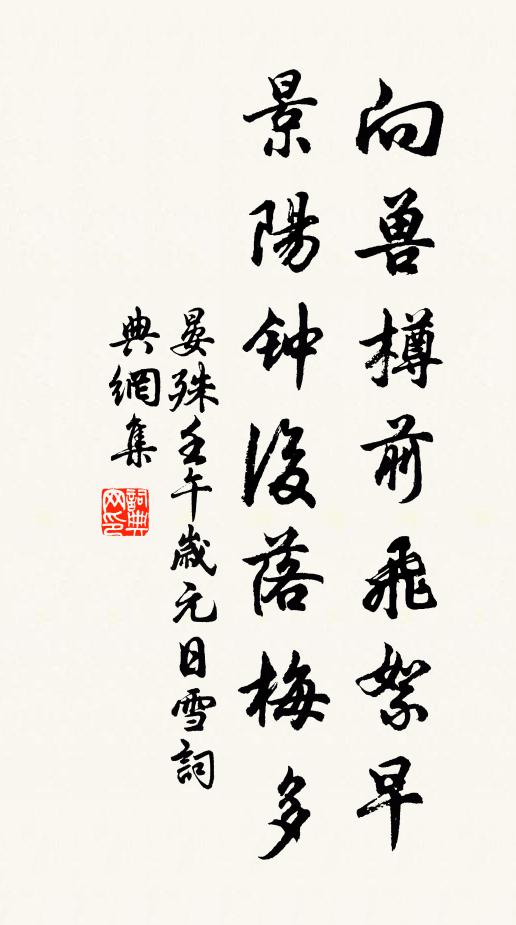 向兽樽前飛絮早
景陽钟後落梅多
晏殊壬午歲元日雪詞
典網集
詞典网印